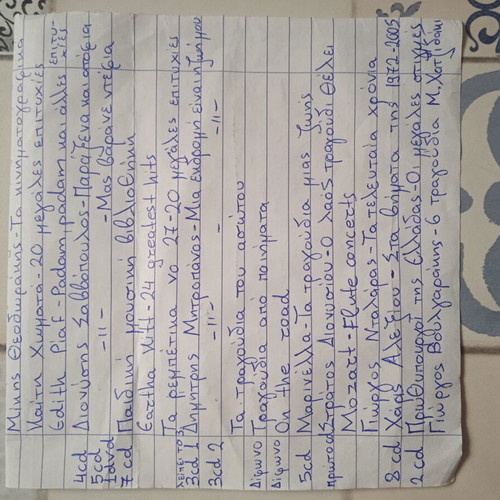 Μίκης Θεοδωράκης - Τα κινηματογραφικά
Καίτη Χωματά - 20 μεγάλες επιτυχίες
4cd Edith Piaf - Padam padam και άλλες επιτυχίες
5cd Διονύσης Σαββόπουλος - Παράξενα και στόρια
1 dvd -11- - Μας βαράνε ντέφια
7 cd Παιδική μουσική βιβλιοθήκη
Eartha Kitt - 24 greatest hits
Τα ρεμπέτικα νο 27 - 20 μεγάλες επιτυχίες
3cd 1 Δημήτρης Μητροπάνος - Μια εκδρομή είναι η ζωή μου
3cd 2 -11- -11-
Τα τραγούδια του ασώτου
Δίφωνο Τραγούδια από ποιήματα
Δίφωνο On the road
5cd Μαρινέλλα - Τα τραγούδια μιας ζωής
Στράτος Διονυσίου - Ο λαός τραγούδι θέλει
Mozart - Flute concerts
Γιώργος Νταλάρας - Τα τελευταία χρόνια
8cd Χάρις Αλεξίου - Στα βήματα της 1972-2005
2cd Πρωθυπουργοί της Ελλάδας - Οι μεγάλες στιγμές
Γιώργος Βούλγαράκης - 6 τραγούδια Μ. Χατζιδάκι